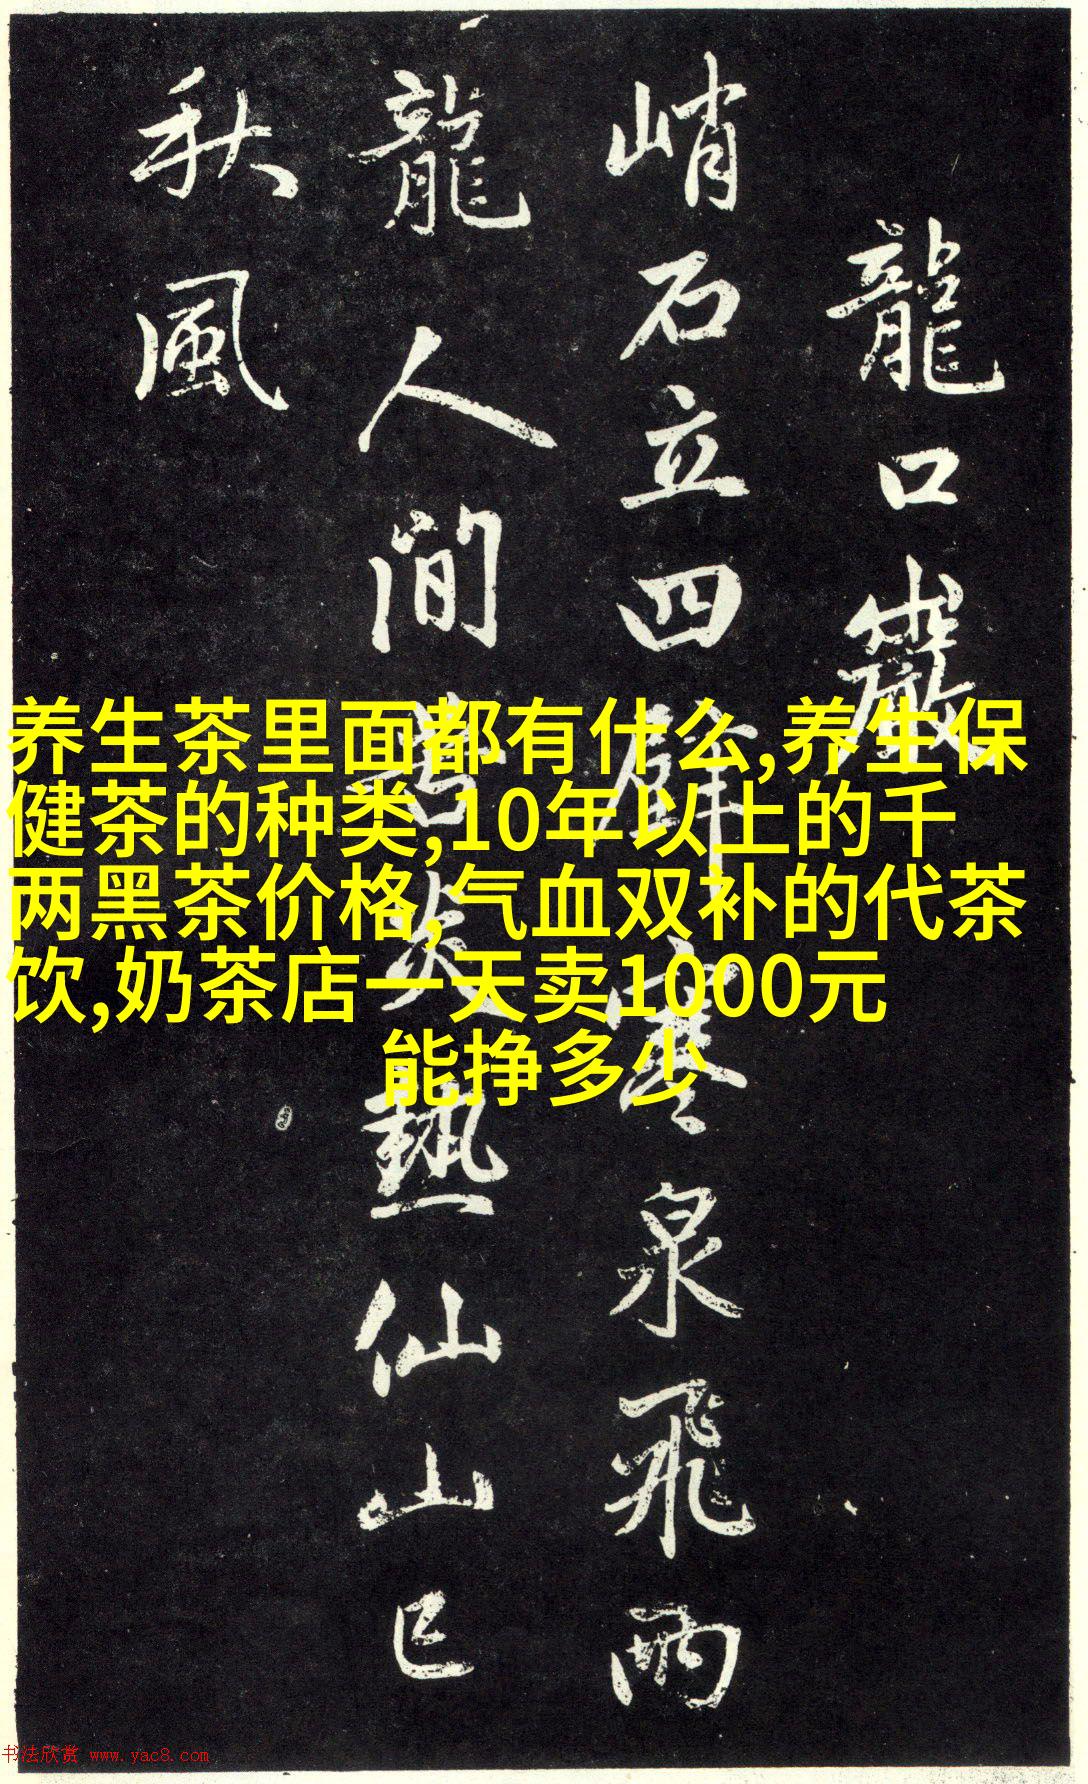 龍口巖
峭石立四壁寒泉飛兩
龍人間苦炎熱仙山已
秋風
养生茶里面都有什么,养生保
健茶的种类,10年以上的千
两黑茶价格,气血双补的代茶
饮,奶茶店一天卖1000元
能挣多少
书法欣赏 www.yac8.com